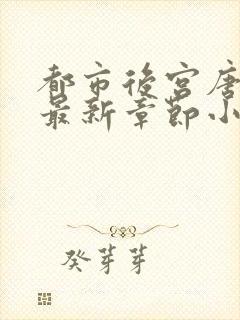 都市後宮唐
最新章節小
癸芽芽